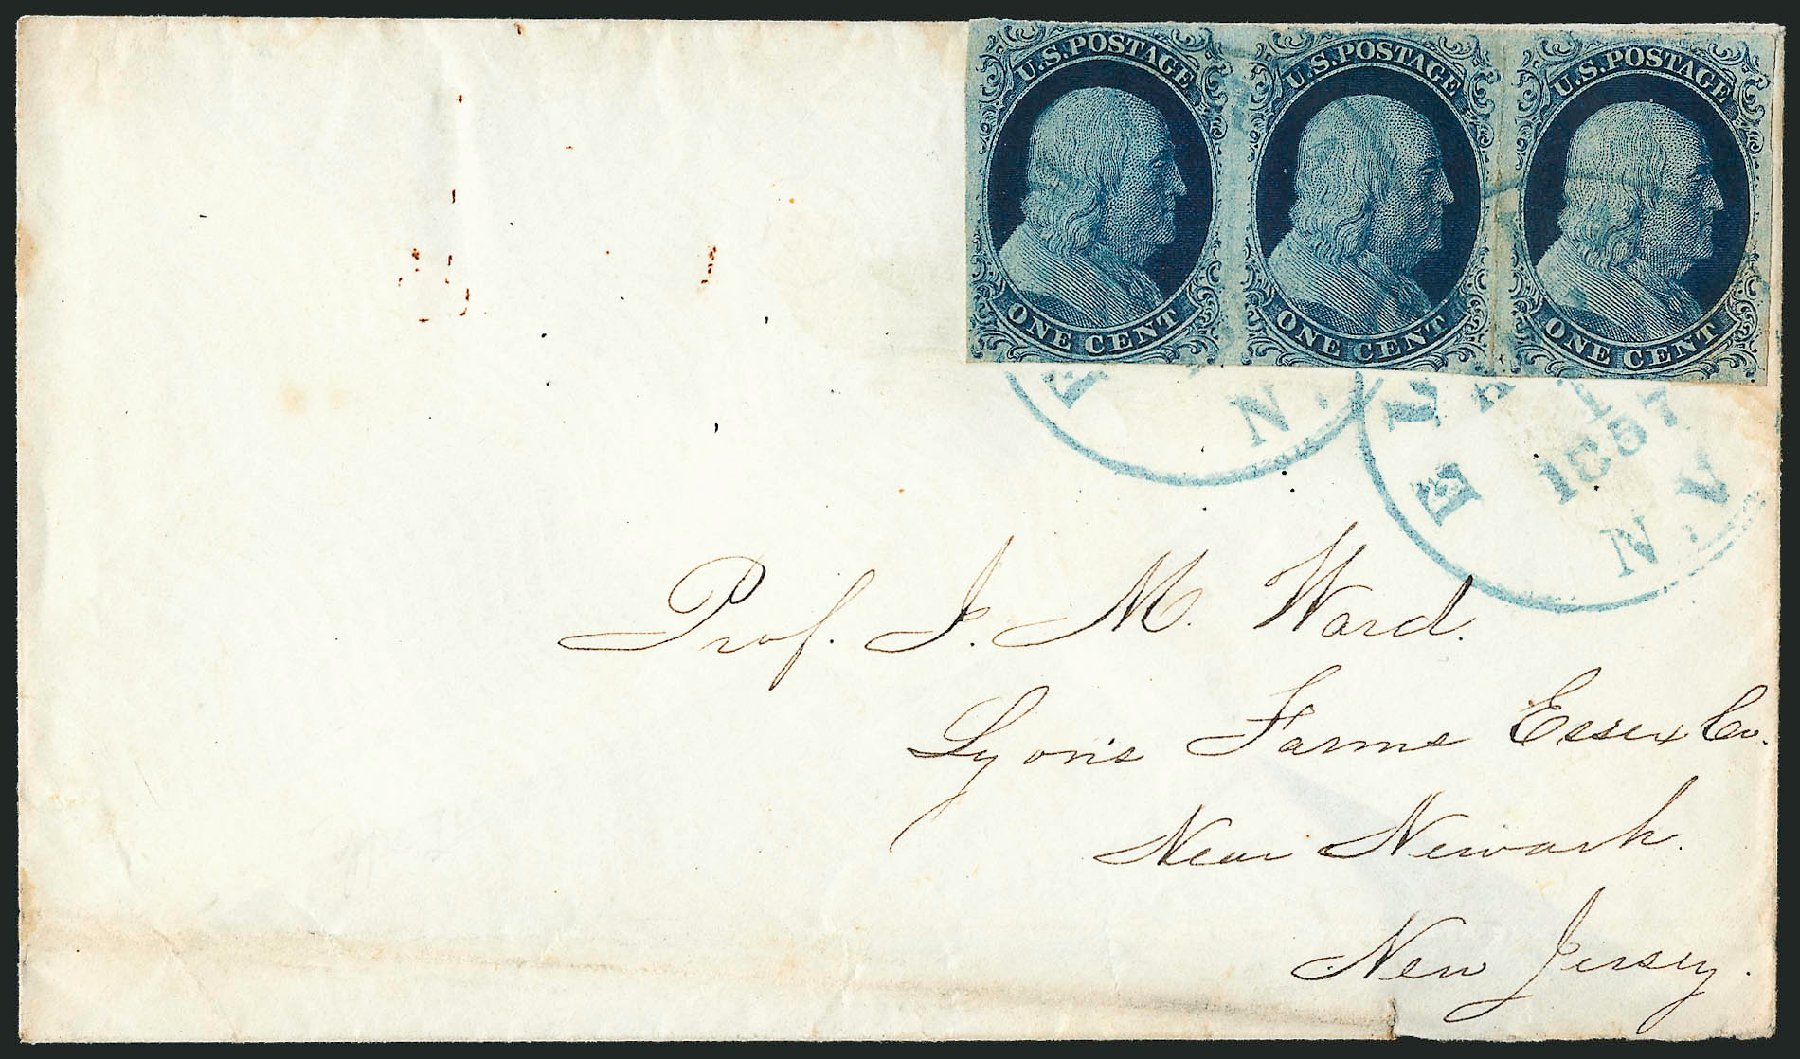 U.S. POSTAGE U.S. POSTAGE U.S. POSTAGE
ONE CENT ONE CENT ONE CENT
1857
N.Y.
Prof. J. M. Ward.
Lyons Farms Essex Co.
Near Newark.
New Jersey.